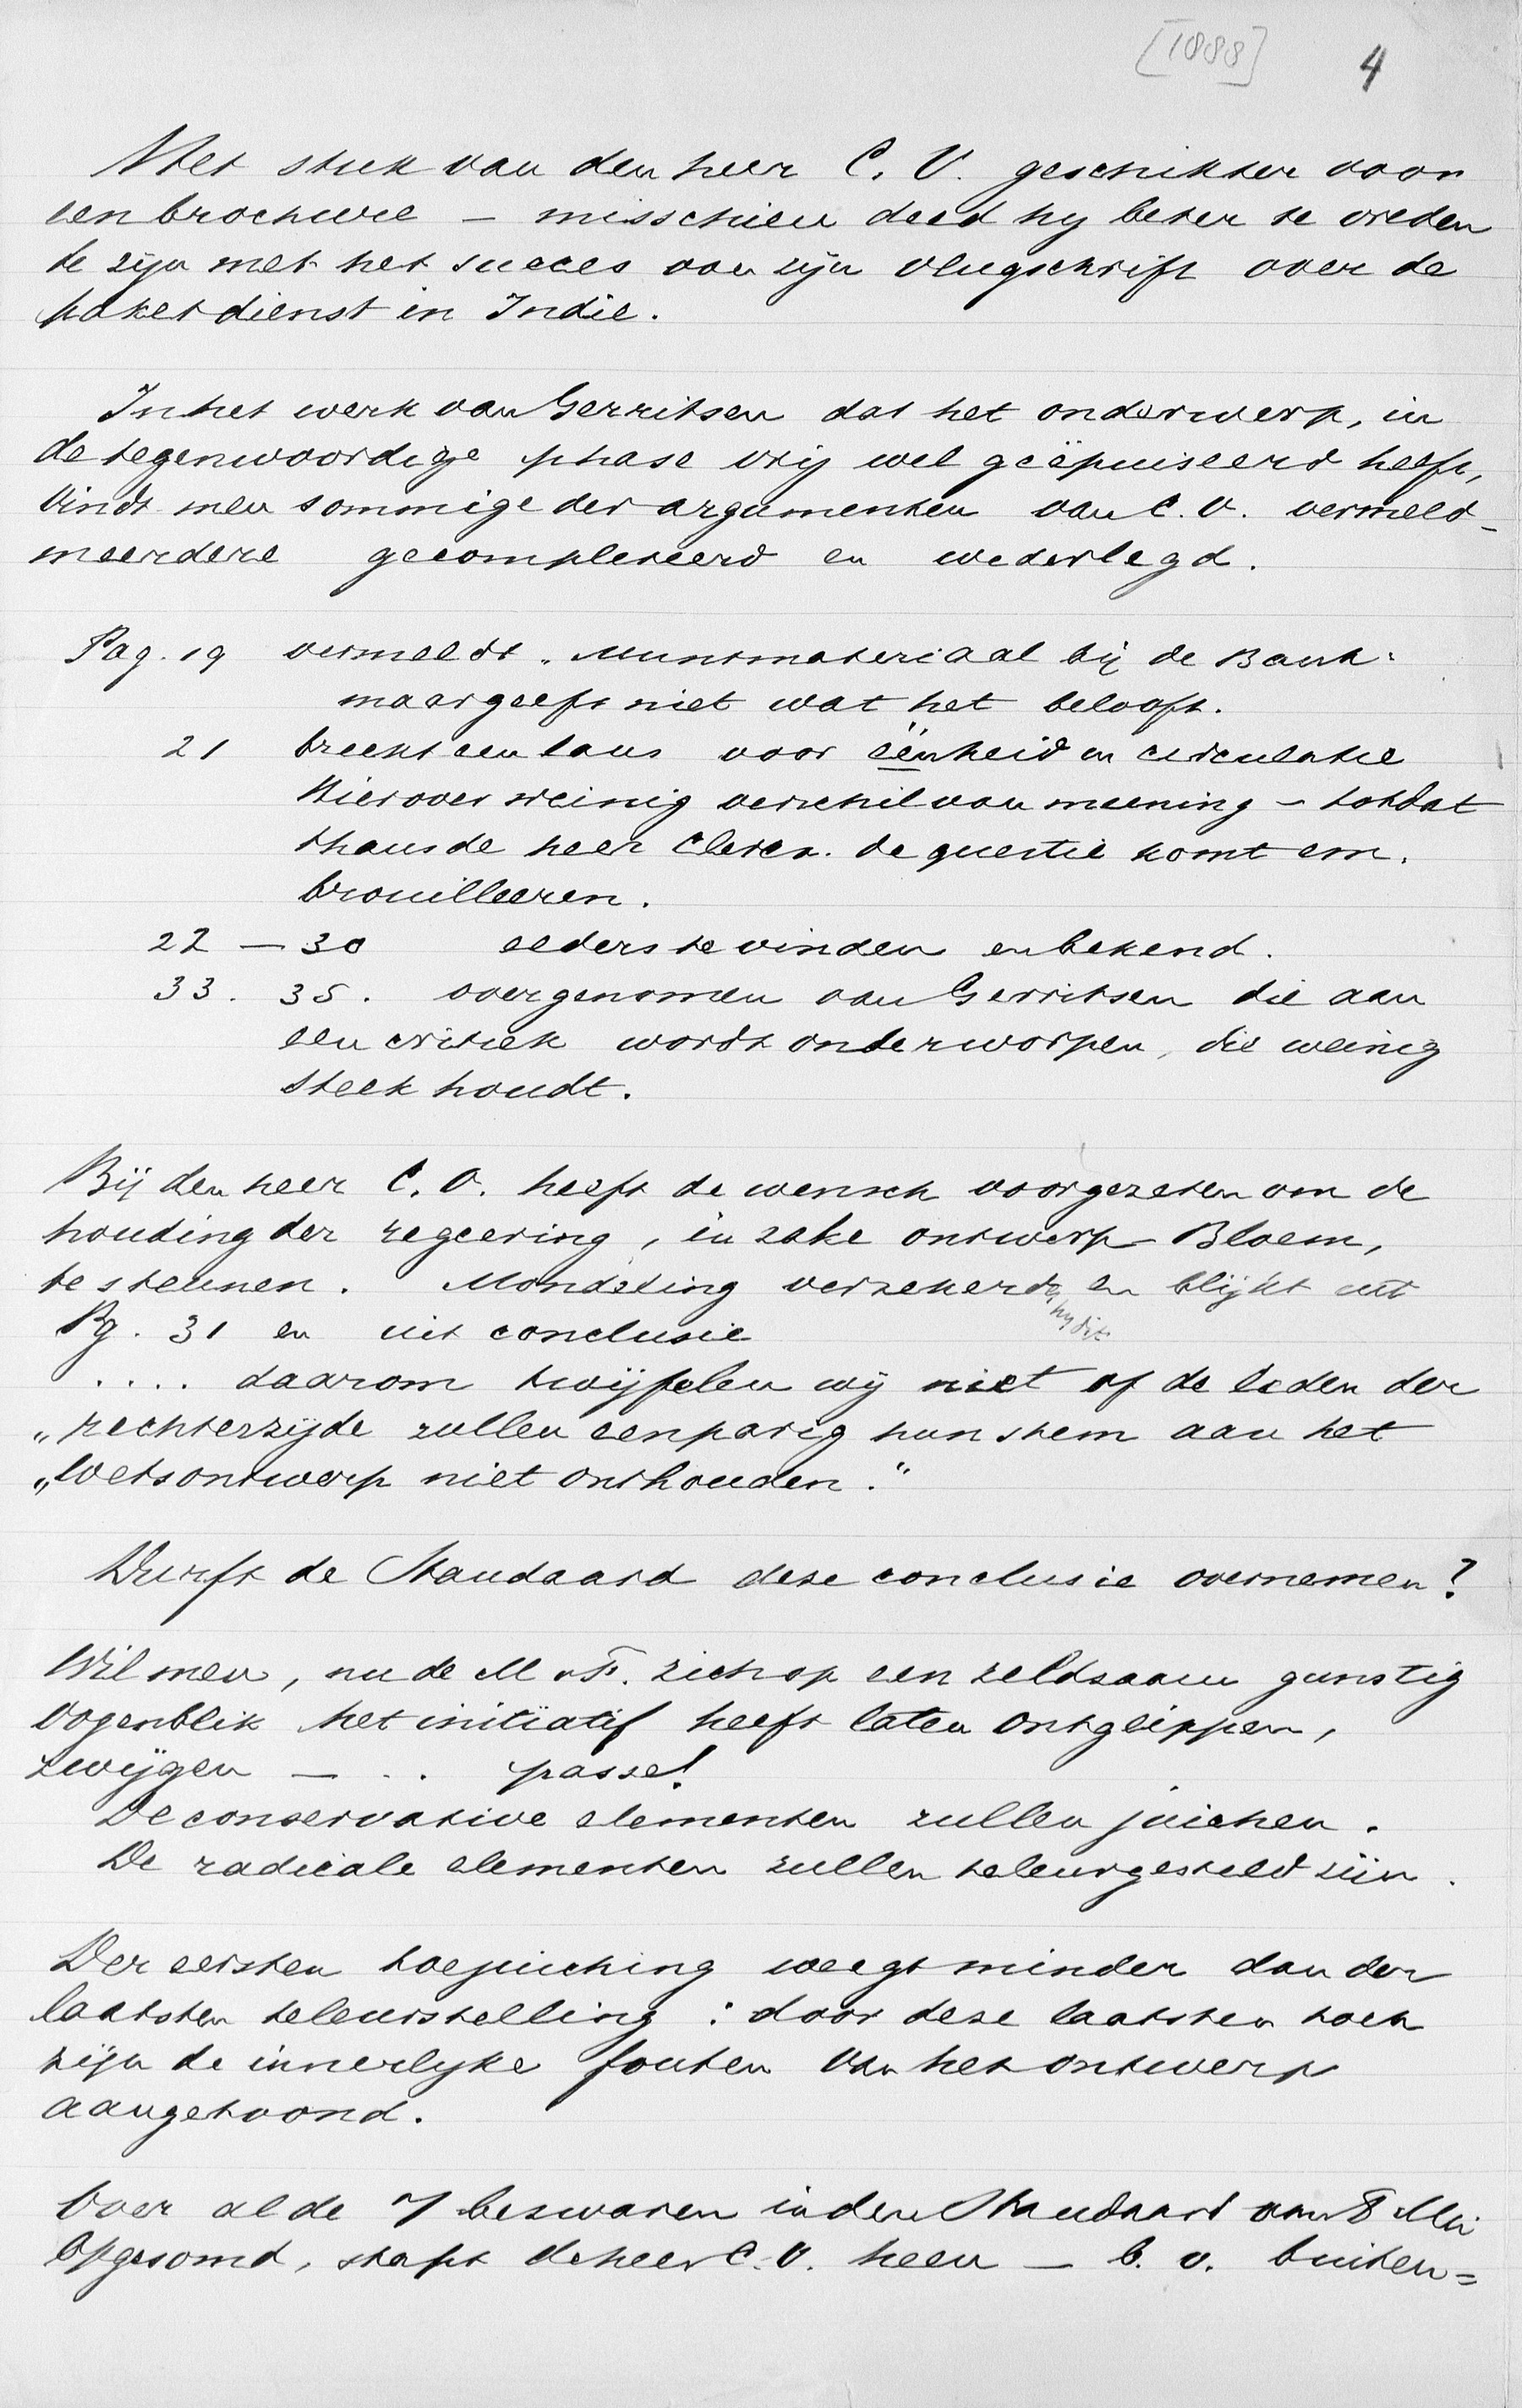 [1888] 4
Het stuk van den heer C. V. geschikter voor
een brochure – misschien deed hy beter te vreden
te zijn met het succes van zijn vlugschrift over de
paketdienst in Indie.
In het werk van Gerritsen dat het onderwerp, in
de tegenwoordige phase vrij wel geëpuiseerd heeft,
vindt men sommige der argumenten van C. V. vermeld –
meerdere gecompleteerd en wederlegd.
Pag. 19 vermeldt „muntmateriaal bij de Bank"
maar geeft niet wat het belooft.
21 breekt een lans voor éénheid in circulatie
Hierover weinig verschil van meening – totdat
thans de heer Clercx. de questie komt em-
brouilleeren.
22 – 30 elders te vinden en bekend.
33. 35. overgenomen van Gerritsen die aan
een critiek wordt onderworpen, die weinig
steek houdt.
Bij den heer C. V. heeft de wensch voorgezeten om de
houding der regeering, in zake ontwerp Bloem,
te steunen. Mondeling verzekerde hy dit en blijkt uit
Pg. 31 en uit conclusie
.... daarom twijfelen wij niet of de leden der
„rechterzijde zullen eenparig hun stem aan het
„Wetsontwerp niet onthouden."
Durft de Standaard deze conclusie overnemen?
Wil men, nu de M v F. zich op een zeldzaam gunstig
oogenblik het initiatif heeft laten ontglippen,
zwijgen – .. passe!
De conservative elementen zullen juichen.
De radicale elementen zullen teleurgesteld zijn.
Der eersten toejuiching weegt minder dan der
laatsten teleurstelling: door deze laatsten toch
zijn de innerlyke fouten van het ontwerp
aangetoond.
Over al de 7 bezwaren in den Standaard van 8 Mei
opgesomd, stapt de heer C. V. heen – b. v. buiten=